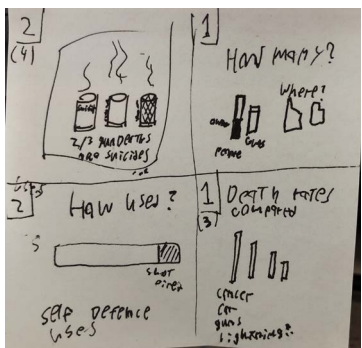 2
(4)
2/3 gun deaths
are suicides
1
How many?
Where?
guns
people
2
How used?
shot
self defence
uses
1
(3)
Death rates
compared
cancer
car
guns
lightning?